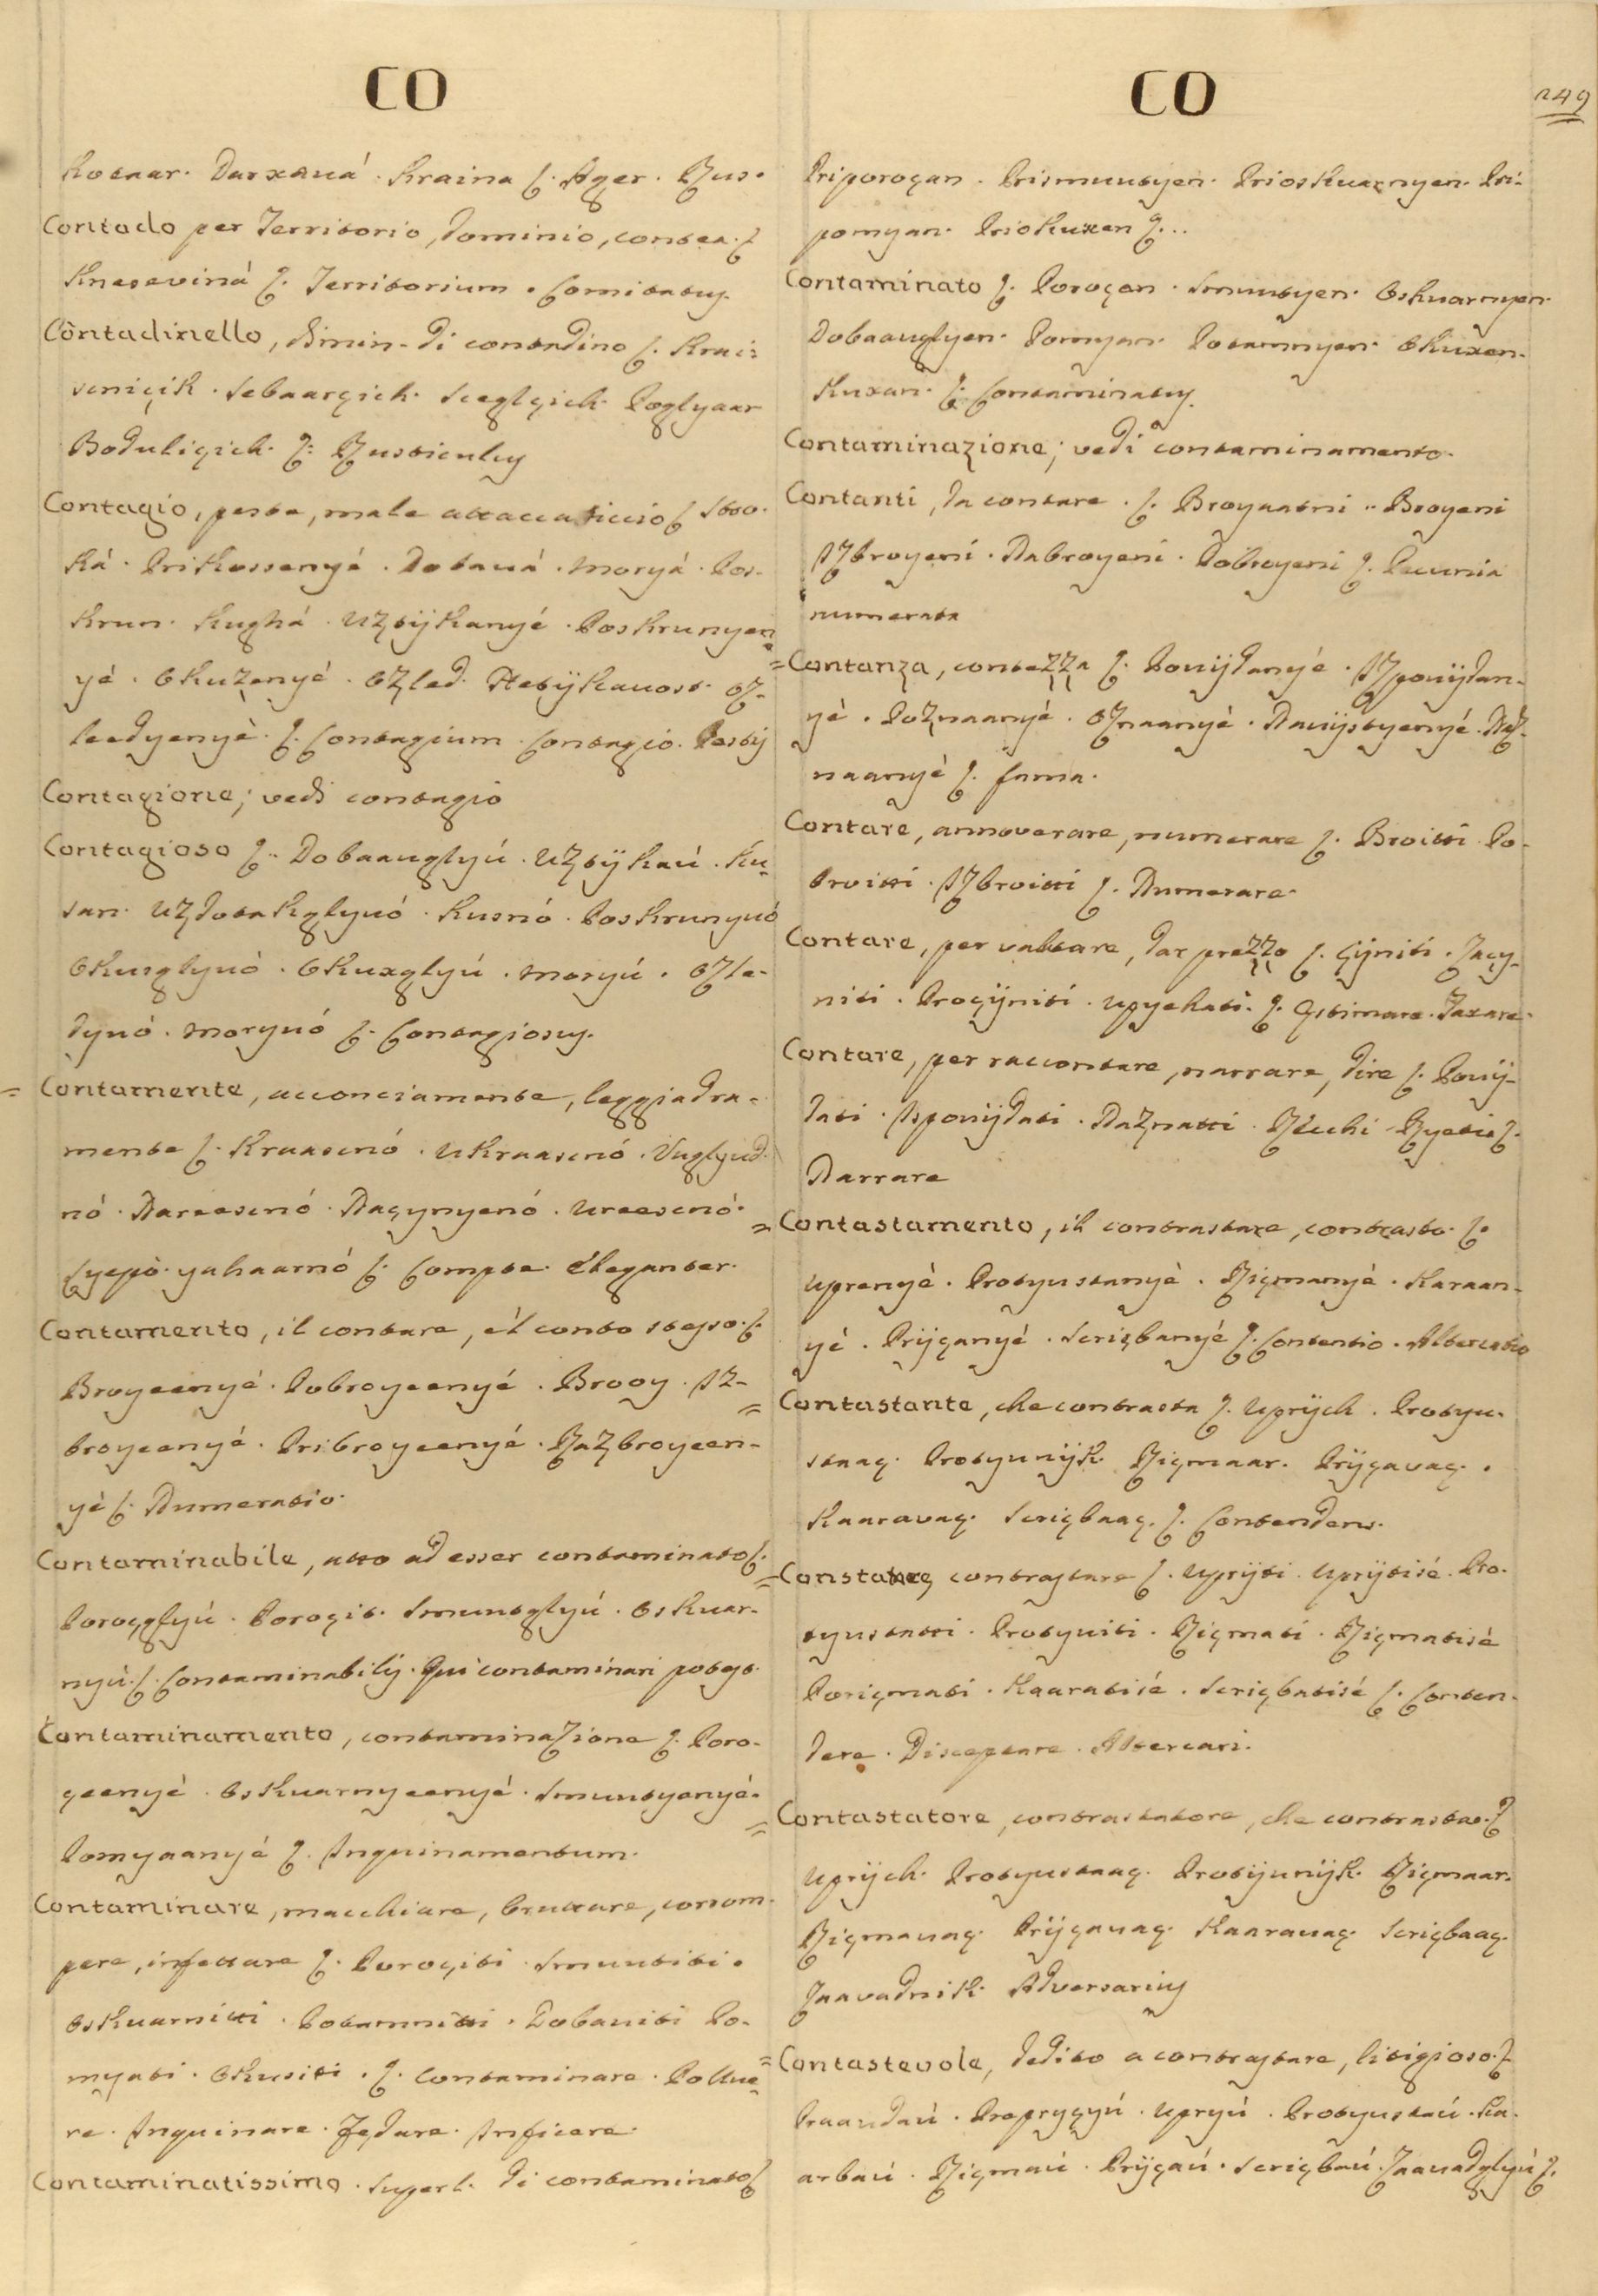 CO
Kotaar. Darxauá. Kraina ſ. Ager. Rus.
Contado per Territorio, dominio, contea. ſ
Knesevinà ſ. Territorium. Comitatus.
Contadinello, dimin. di contadino ſ. Krai=
scniçik. Sebaarçich. Sceglçich. Poglyaar
Boduliçich. ſ: Rusticulus
Contagio, peste, male attaccaticcio ſ Stro.
ká. Prikossenyé. Dobavá. Moryá. Pos-
krun. Kughá. Uztijkanyé. Poskrunyen
yé. Okuzenyé. Ozled. Netijkavost. Oz-
leedyenyè. ſ. Contagium. Contagio. Pestis
Contagione; vedi contagio
Contagioso ſ. Dobaauglyú. Uztijkaú. Ku-
san. Uzdotakglyuó. Kusnó. Poskrunyuó
Okusglyuò. Okuxglyú. Moryú. Ozle-
dyuó. Moryuó ſ. Contagiosus.
= Contamente, acconciamente, leggiadra-
mente ſ. Kraascnó. Ukraascnó. Uuglyud.
nó. Nareescnó. Naçynyenó. Ureescnó.
Lyepò. yuhaarnó ſ. Compte. Eleganter.
Contamento, il contare, el conto stesso. ſ.
Broyeenyé. Pobroyeenyé. Brooy. Iz-
broyeenyé. Pribroyeenyé. Razbroyeen-
yé ſ. Numeratio.
Contaminabile, atto ad esser contaminato ſ.
Poroçglyú. Poroçit. Smutglyú. Oskuar-
nyú. ſ. Contaminabilis. Qui contaminari potest.
Contaminamento, contaminazione ſ. Poro-
çeenyé. Oskuarnyeenyé. Smuutyenyé.
Pomyaanyé ſ. Inquinamentum.
Contaminare, macchiare, bruttare, corrom-
pere, infettare ſ. Poroçiti. Smuutiti.
Oskuarnitti. Potamnitti. Dobaviti Po-
myati. Okusiti. ſ. Contaminare. Pollue-
re. Inquinare. Fędare. Inficere.
Contaminatissimo. Superl. di contaminato ſ
CO
249
Priporoçan. Prismuutyen. Prioskuarnyen. Pri-
pomyan. Priokuxen ſ...
Contaminato ſ. Poroçan. Smuutyen. Oskuarnyen.
Dobaauglyen. Pomyan. Potamnyen. Okuxen.
Kuxan. ſ. Contaminatus.
Contaminazione; vedi contaminamento.
Contanti, da contare. ſ. Broyaatni.. Broyeni
Izbroyeni. Nabroyeni. Pobroyeni ſ. Pecunia
numerata
= Contanza, contezza ſ. Povijdanyé. Izpovijdan-
yé. Poznaanyé. Oznaanyé. Navijstyenyé. Naz-
naanyé ſ. fama.
Contare, annoverare, numerare ſ. Broitti. Po-
broitti. Izbroitti ſ. Numerare.
Contare, per valutare, dar prezzo ſ. Çijniti. Zaçij-
niti. Proçijniti. Upyehati. ſ. Ęstimare. Taxare.
Contare, per raccontare, narrare, dire ſ. Povij-
dati. Ispovijdati. Naznatti. Recchi. Ryetis ſ.
Narrare
= Contastamento, il contrastare, contrasto. ſ.
Uprenyé. Protyustanyè. Riçmanyé. Karaan-
yé. Prijçanyé. Scriçbanyé ſ. Contentio. Altercatio
= Contastante, che contrasta ſ. Uprijch. Protyu-
staaç. Protyunijk. Riçmaar. Prijçavaç.
Kaaravaç. Scriçbaaç. ſ. Contendens.
= Constatare, contrastare ſ. Uprijti. Uprijtisé. Pro-
tyustatti. Protyuiti. Riçmati. Riçmatisè
Poriçmati. Kaaratisé. Scriçbatisé ſ. Conten-
dere. Disceptare. Altercari.
= Contastatore, contrastatore, che contrasta. ſ
Uprijch. Protyustaaç. Protijunijk. Riçmaar.
Riçmavaç. Prijçavaç. Kaaravaç. Scriçbaaç.
Zaavadnik. Adversarius
= Contastevole, dedito a contrastare, litigioso. ſ
Praaudaú. Propryçyú. Upryú. Protyustaú. Ka-
arbaú. Riçmaú. Prijçaú. Scriçbaú. Zaauadglyú ſ.